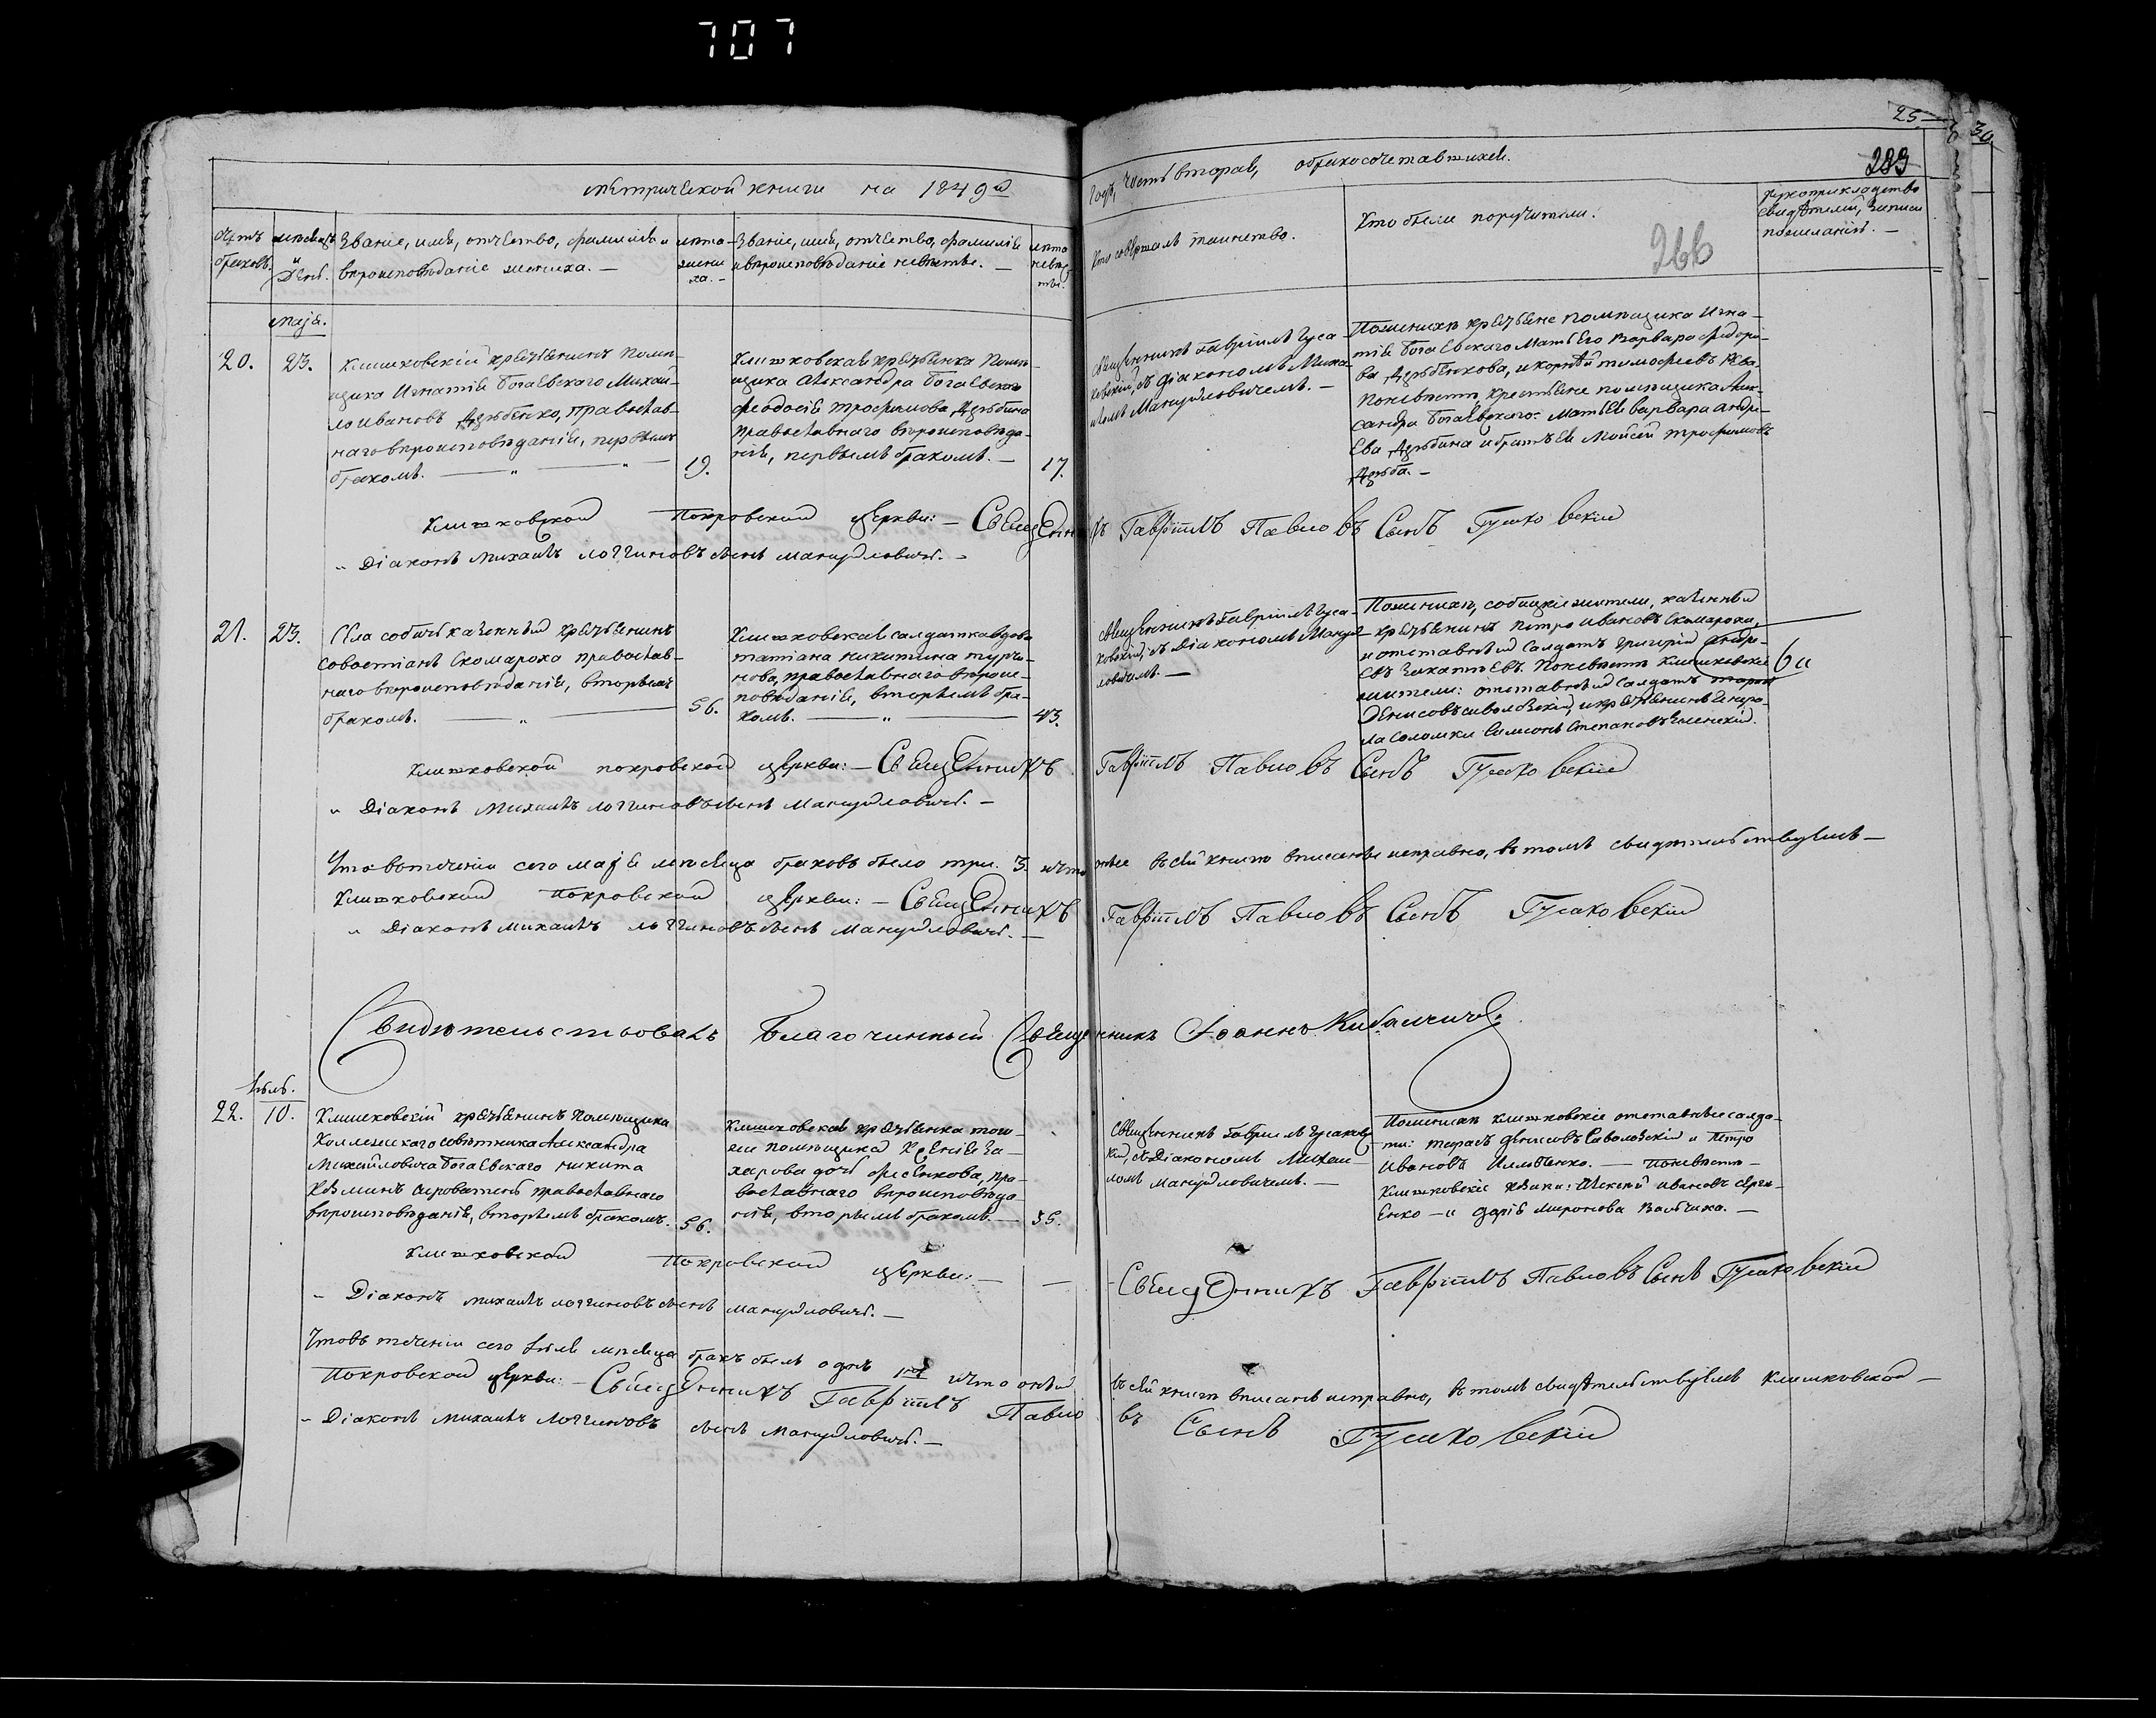 707
25
30
289
266
метрической книги на 1849й
годъ, часть вторая, о бракосочетавшихся.
Счетъ
браковъ.
месяцъ
и
День.
Званіе, имя, отчество, фамилія и
вѣроисповѣданіе жениха. —
лета
жени
ха. -
Званіе, имя, отчество, фамилія
и вѣроисповѣданіе невѣсты. —
лета
невѣ
сты.
Кто совершалъ таинство.
Кто были поручители.
рукоприкладство
свидѣтелей, записи
по желанію. —
маја.
20.
23.
Клишковскій крестьянинъ помѣ-
щика Игнатія Богаевскаго Михаи-
ло Ивановъ Дзюбенко, православ-
наго вѣроисповѣданія, первымъ
бракомъ. — " — " —
19.
Клишковская крестьянка помѣ-
щика Александра Богаевскаго
Феодосія Трофимова Дзюбина
православнаго вѣроисповѣда-
нія, первымъ бракомъ. —
17.
Священникъ Гавріилъ Гуса-
ковскій, съ Діакономъ Миха-
иломъ Мануйловичемъ. —
По женихѣ крестьяне помѣщика Игна-
тія Богаевскаго Мать его Варвара Федоро-
ва Дзюбенкова, и Корнѣй Тимофеевъ
По невѣстѣ, крестьяне помѣщика Алек-
сандра Богаевскаго: мать ея Варвара Андре-
ева Дзюбина и братъ ея Моисей Трофимовъ
Дзюба. —
Клишковской Покровской церкви: — Священникъ Гавріилъ Павловъ Сынъ Гусаковскій
" Діаконъ Михаилъ Логгиновъ сынъ Мануйловичъ. —
21.
23.
Села Собичъ казенный крестьянинъ
Совостіанъ Скомароха православ-
наго вѣроисповѣданія, вторымъ
бракомъ. — " —
56.
Клишковская солдатка вдова
Татіана Никитина
православнаго вѣроис-
повѣданія, вторымъ бра-
комъ. — " —
43.
Священникъ Гавріилъ Гуса-
ковскій, съ Діакономъ Мануй-
ловичемъ. —
По женихѣ, собицкіе жители, казенный
крестьянинъ Петро Ивановъ Скомароха,
и отставный солдатъ Григорій Андре-
евъ По невѣстѣ Клишковскіе
жители: отставный солдатъ Тарасъ
Денисовъ и крестьянинъ
Симонъ Степановъ
Клишковской покровской церкви: — Священникъ Гавріилъ Павловъ Сынъ Гусаковскій
" Діаконъ Михаилъ Логгиновъ сынъ Мануйловичъ. —
Что въ теченіи сего маја месяца браковъ было три. 3. и что оные въ сей книгѣ вписаны исправно, въ томъ свидѣтельствуемъ —
Клишковской Покровской церкви: — Священникъ Гавріилъ Павловъ Сынъ Гусаковскій
" Діаконъ Михаилъ Логгиновъ сынъ Мануйловичъ. —
Свидѣтельствовалъ Благочинный Священникъ Іоаннъ Кибальчичъ
Іюль.
22.
10.
Клишковскій крестьянинъ помѣщика
Коллежскаго совѣтника Александра
Михайловича Богаевскаго Никита
Козминъ Сироватень православнаго
вѣроисповѣданія, вторымъ бракомъ.
56.
Клишковская крестьянка того-
же помѣщика Ксенія За-
харова дочь Фесенкова, пра-
вославнаго вѣроисповѣда-
нія, вторымъ бракомъ. —
55.
Священникъ Гавріилъ Гусаковс-
кій, съ Діакономъ Михаи-
ломъ Мануйловичемъ. —
По женихѣ клишковскіе отставные солда-
ты: Тарасъ Денисовъ и Петро
Ивановъ — По невѣстѣ —
Клишковскіе Алексѣй Ивановъ
— и Дарія Миронова —
Клишковской Покровской церкви: — — Священникъ Гавріилъ Павловъ Сынъ Гусаковскій
- Діаконъ Михаилъ Логгиновъ сынъ Мануйловичъ. —
Что въ теченіи сего Іюля месяца бракъ былъ одинъ 1й и что оный въ сей книгѣ вписанъ исправно, въ томъ свидѣтельствуемъ Клишковской —
Покровской церкви: — Священникъ Гавріилъ Павловъ Сынъ Гусаковскій
- Діаконъ Михаилъ Логгиновъ сынъ Мануйловичъ. —